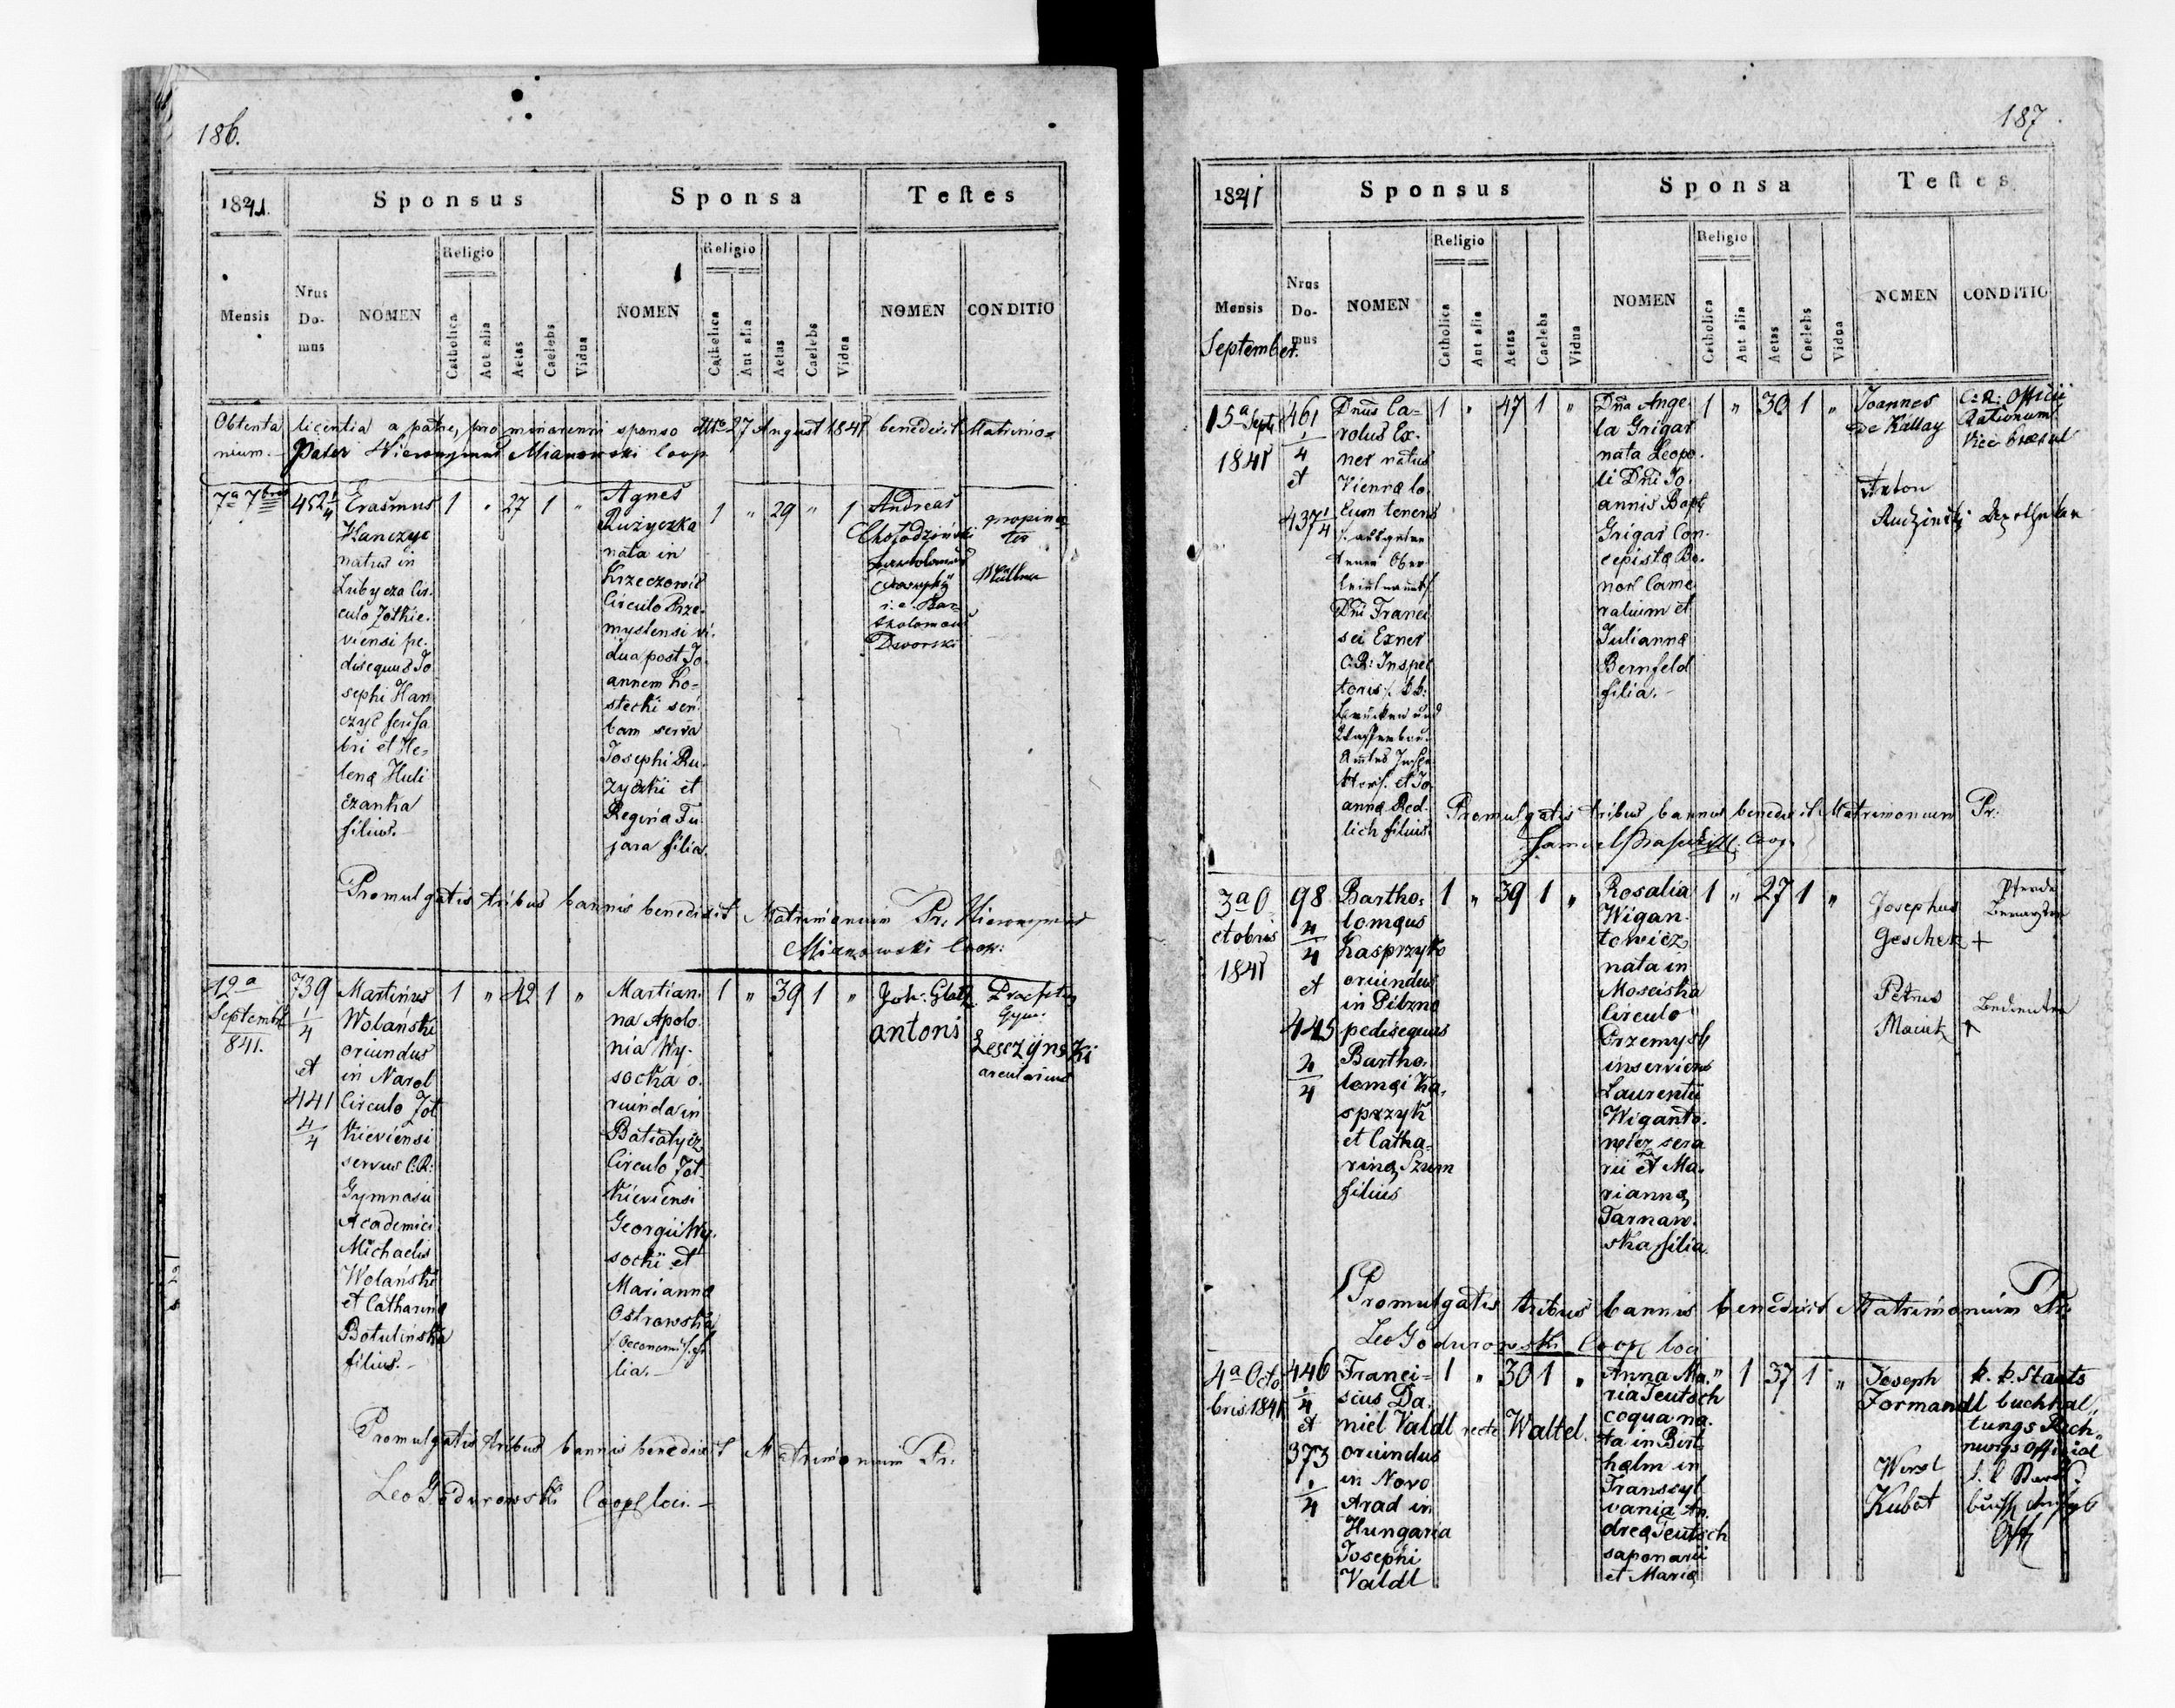 186.
1841.
Sponsus
Sponsa
Testes
Mensis
Nrus Do- mus
NOMEN
Religio
Catholica
Aut alia
Aetas
Caelebs
Vidua
NOMEN
Religio
Catholica
Aut alia
Aetas
Caelebs
Vidua
NOMEN
CONDITIO
Obtenta licentia a patre, pro minorenni sponso 27 August 1841 benedixit Matrimo=
nium. Pater Hieronymus Mianowski Coop
7a 7bris
452 1/4
Erasmus
Hanczyc
natus in
Lubycza Cir.
culo Żołkie.
viensi pe.
disequus Jo
sephi Han
czyc
bri et He.
lena Huli
czanka
filius.
1 " 27 1 "
Agnes
Rużyczka
nata in
Krzeczowic
Circulo Prze.
myslensi vi.
dua post Jo.
annem Ko-
stecki scri
bam serva
Josephi Ru.
zyczki et
Regina Fu
jara filia.
1 " 29 " 1
Andreas
Chołodziński
propina
tor
i.e. Bar=
tholomaus
Dworski
Müllner
Promulgatis tribus bannis benedixit Matrimonium Pr: Hieronymus
Mianowski Coop:
12a
Septembr
841.
739
1/4
et
441
4/4
Martinus
Wolański
oriundus
in Narol
Circulo Żoł
kieviensi
servus C.R:
Gymnasii
Academici
Michaelis
Wolański
et Catharina
Botulińska
filius.-
1 " 42 1 "
Martian.
na Apolo.
nia Wy.
socka o.
riunda in
Batiatycz
Circulo Żoł.
kieviensi
Georgii Wy.
socki et
Marianna
Ostrowska
/: Oeconomi :/ fi
lia.-
1 " 39 1 "
Joh: Glatz
Gym.
antoni Leszczynski
arcularius
Promulgatis tribus bannis benedixit Matrimonium Pr:
Leo Godurowski Coop loci.-
187
1841
Sponsus
Sponsa
Testes
Mensis
Nrus Do- mus
NOMEN
Religio
Catholica
Aut alia
Aetas
Caelebs
Vidua
NOMEN
Religio
Catholica
Aut alia
Aetas
Caelebs
Vidua
NOMEN
CONDITIO
September.
15a Septr
1841
461
1/4
et
437 1/4
Dnus Ca=
rolus Ex.
ner natus
Vienna lo.
cum tenens
tener Ober
Dni Franci
sci Exner
C.R: Inspec
toris /: k k:
Brücken und
Wasserbau.
Amtes Inspe
ktors :/ et Jo
anna Red.
lich filius.
1 " 47 1 "
Dna Ange.
la Grigar
nata Leopo.
li Dni Jo
annis Bapt
Grigar Con.
cepista Bo.
nor Came
ralium et
Julianna
Bernfeld
filia.-
1 " 30 1 "
Joannes
de Kállay
C: R: Officii
Rationum
Vice
Anton
Rudzinski
Promulgatis tribus bannis benedixit Matrimonium Pr:
Samuel Coop.
3a O
ctobris
1841
98
4/4
et
445
2/4
Bartho=
lomaus
Kasprzyk
oriundus
in Pilzno
pedisequus
Bartho.
lomai Ka.
sprzyk
et Catha=
rina Szum
filius
1 " 39 1 "
Rosalia
Wigan.
towicz
nata in
Mosciska
Circulo
Przemysl
inserviens
Laurentii
Wiganto.
wicz sera
rii et Ma.
rianna
Tarnaw.
ska filia.
1 " 27 1 "
Josephus
Geschek +
Petrus
Maciek
Bedienter
Promulgatis tribus bannis benedixit Matrimonium Pr:
Leo Godurowski Coop loci
4a Octo
bris 1841
446
1/4
et
373
1/4
Franci=
scus Da.
niel Valdl recte Waltel.
oriundus
in Novo
Arad in
Hungaria
Josephi
Valdl
1 " 30 1 "
Anna Ma.
ria Teutsch
coqua na.
ta in Birt
halm in
Transsyl
vania An.
drea Teutsch
saponarii
et Maria
" 1 37 1 "
Joseph
Formandl
k. k. Staats
buchhal
tungs Rech
nungs Official
Kubat